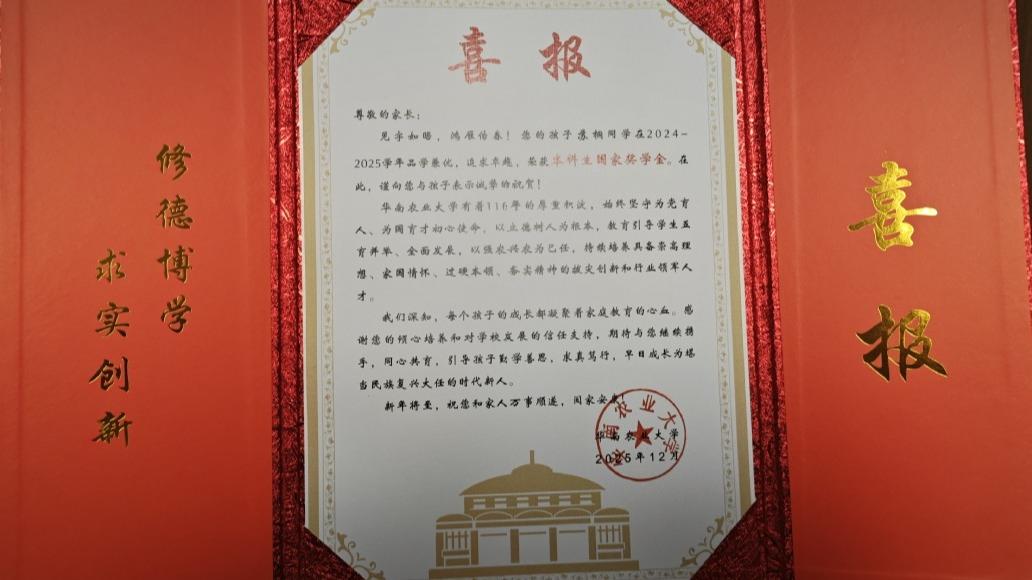 修德博学
求实创新
喜报
尊敬的家长：
见字如晤，鸿雁传春！您的孩子苏桐同学在2024-
2025学年品学兼优，追求卓越，荣获本科生国家奖学金。在
此，谨向您与孩子表示诚挚的祝贺！
华南农业大学有着116年的厚重积淀，始终坚守为党育
人、为国育才初心使命，以立德树人为根本，教育引导学生五
育并举、全面发展，以强农兴农为己任，持续培养具备崇高理
想、家国情怀、过硬本领、务实精神的拔尖创新和行业领军人
才。
我们深知，每个孩子的成长都凝聚着家庭教育的心血。感
谢您的倾心培养和对学校发展的信任支持，期待与您继续携
手，同心共育，引导孩子勤学善思，求真笃行，早日成长为堪
当民族复兴大任的时代新人。
新年将至，祝您和家人万事顺遂，阖家安康！
华南农业大学
2025年12月
华南农业大学
喜报